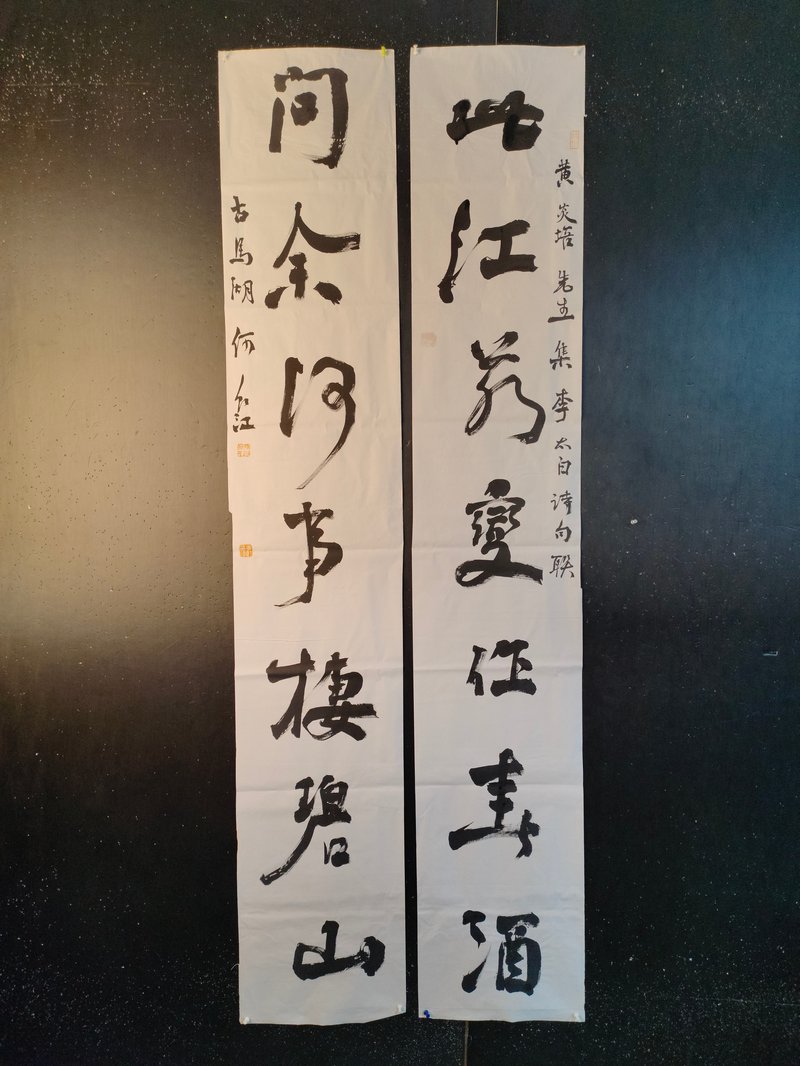 黄炎培先生集李太白诗句联
此江若變作春酒
问余何事棲碧山
古馬湖何江